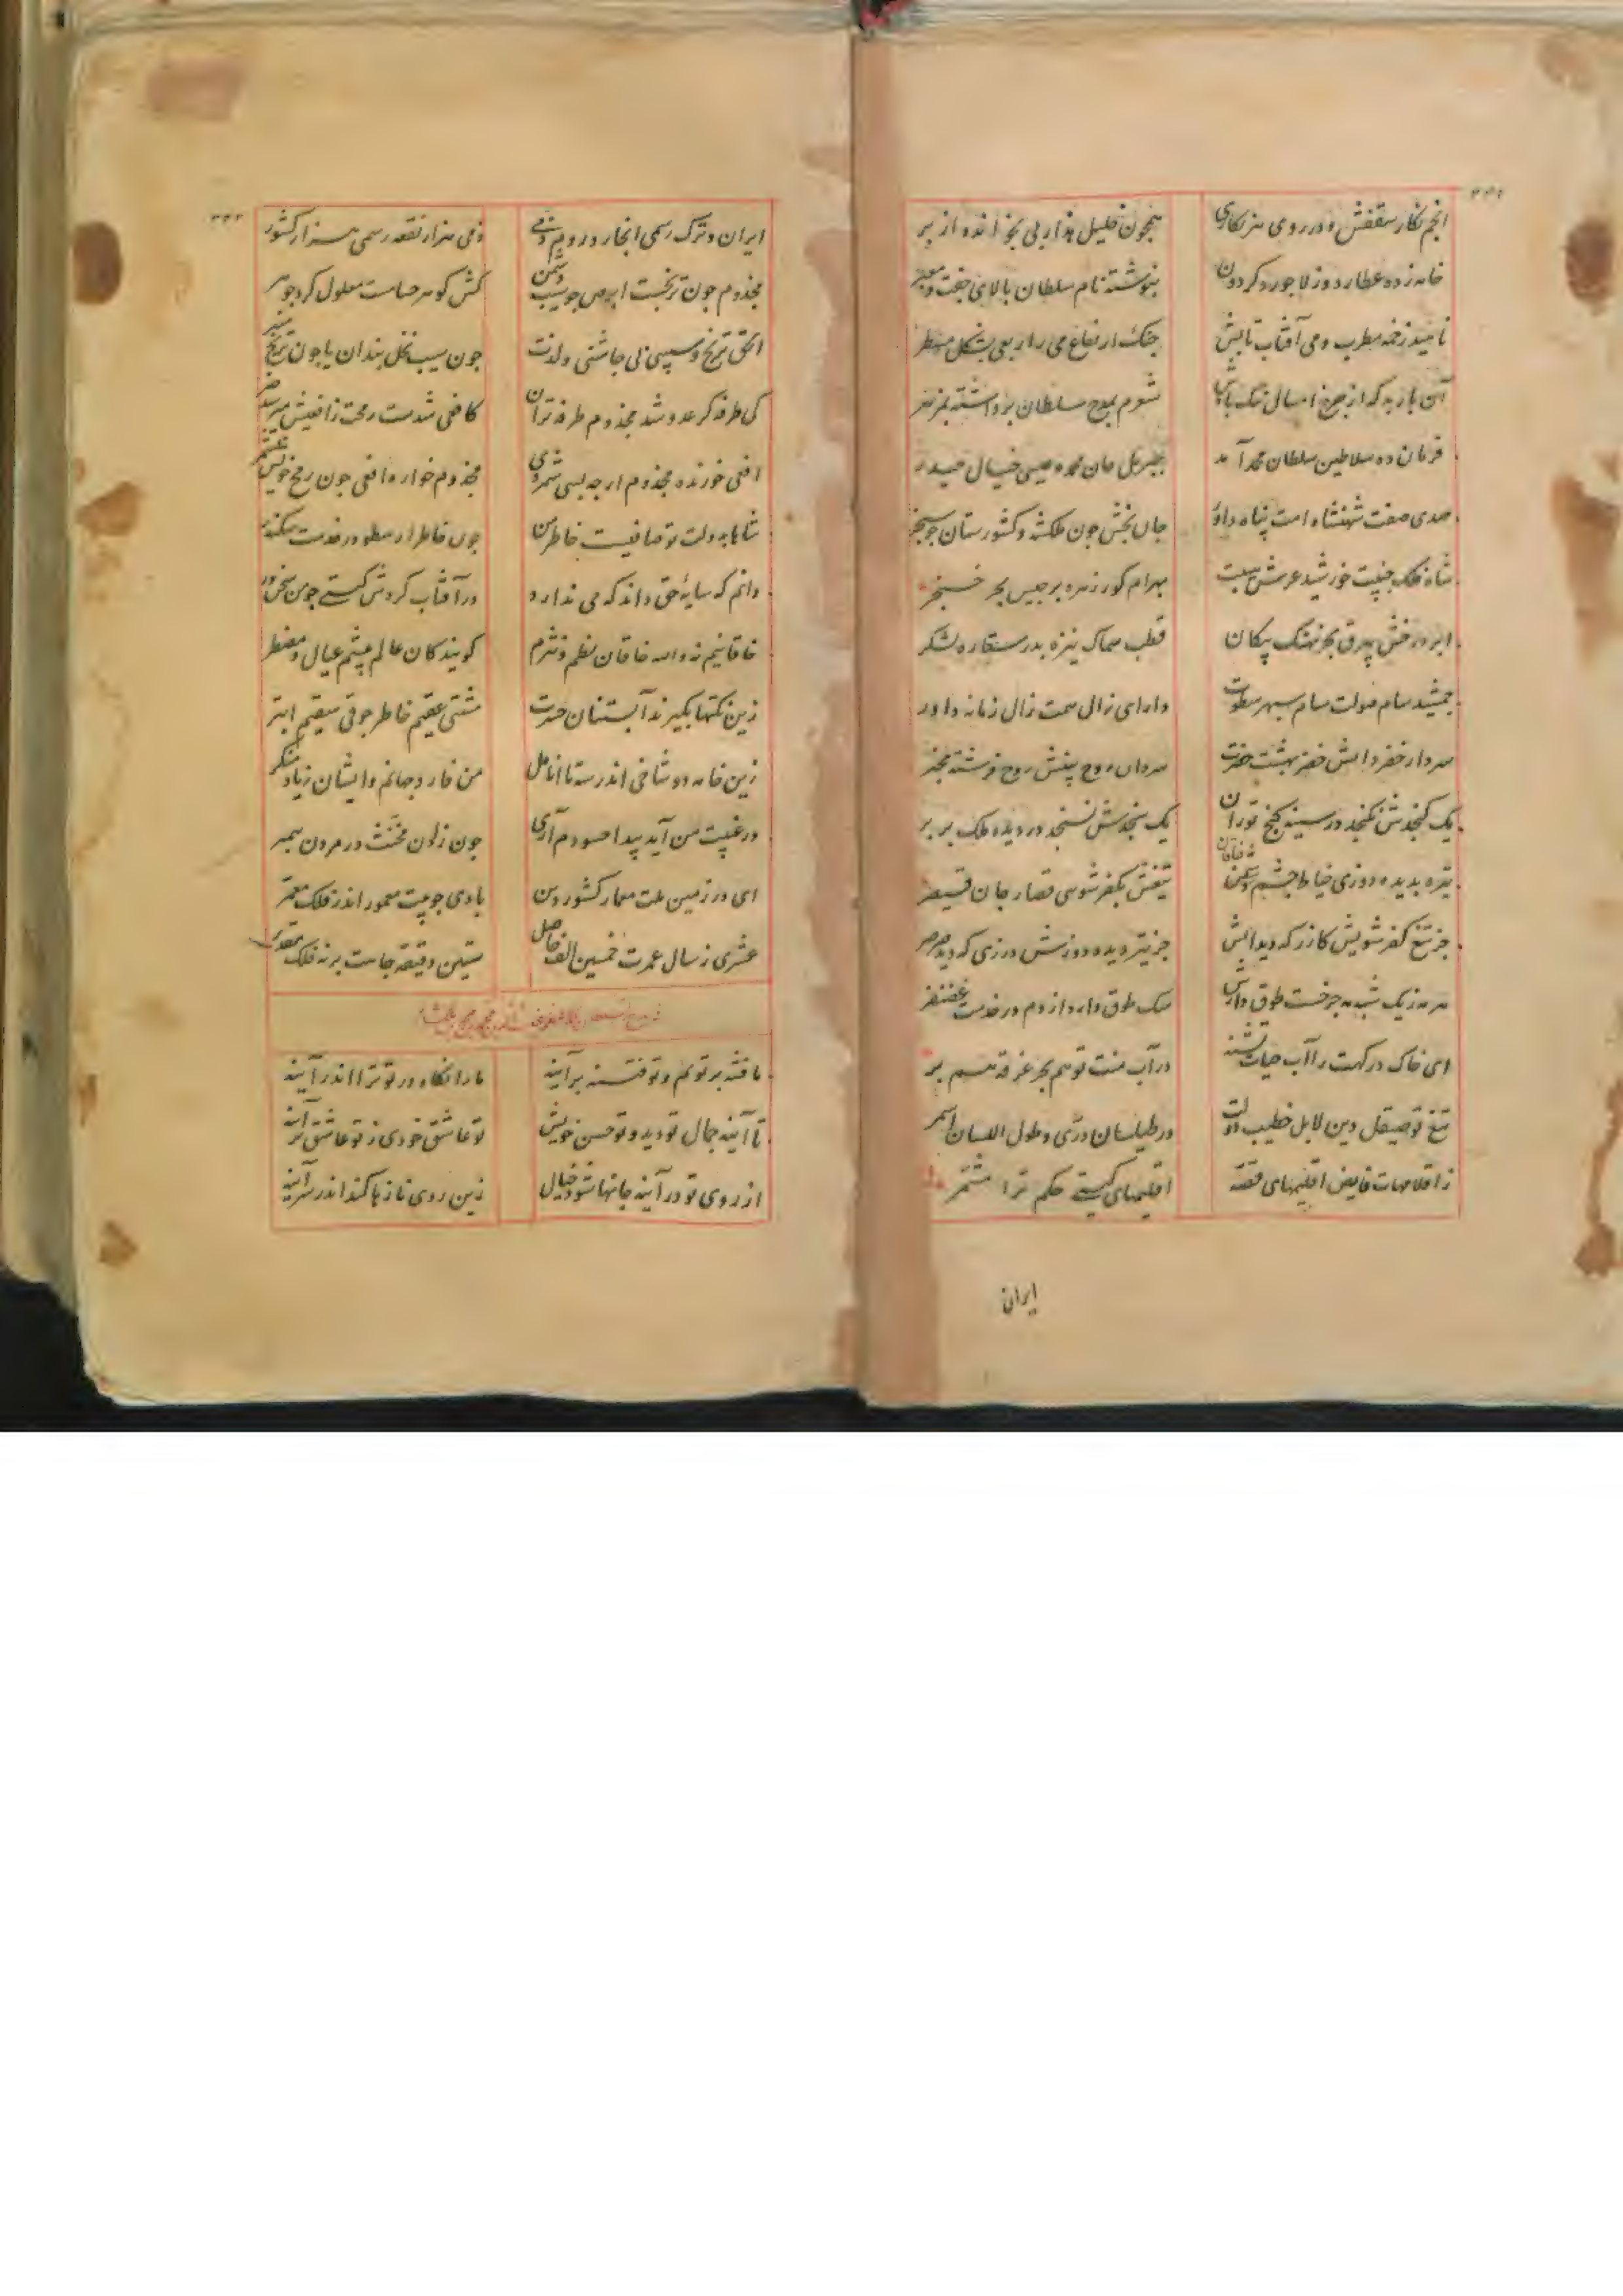 انجم نگار سقفش در روی هر نگاری
همچون خلیل هذا ربی بخوانده از بر
خامه زده عطارد وز لاجورد گردون
بنوشته نام سلطان بالای جفت
ناهید زخمه مطرب و می آفتاب تابش
چنگ ارتفاع می را ربعی بشکل مسطر
شعرم بمدح سلطان برداشته
فرمان ده سلاطین سلطان محمد
مهدی صفت شهنشاه امت پناه داور
جان بخش چون ملکشه و کشورستان چو سنجر
شاه فلک جنیبت خورشید عرش هیبت
بهرام گور زهره برجیس بحر خنجر
ابر درخش بیرق بحر نهنگ پیکان
قطب سماک نیزه بدر ستاره لشکر
جمشید سام صولت سام سپهر سطوت
دارای زال همت زال زمانه داور
سردار خضر دانش خضر بهشت حضرت
یک گنجدش نگنجد در سینه گنج توران
یک سنجدش نسنجد در دیده ملک بربر
تیره بدیده دوزی خیاط چشم دشمن
تیغش بکفر شوئی قصار جان قیصر
جز تیغ کفر شویش گازر که دید آتش
جز تیر دیده دوزش درزی که دید صرصر
سگ طوق دارد از دم در خدمت غضنفر
ای خاک درگهت را آب حیات تشنه
در آب منت تو هم بحر غرقه هم بر
تیغ تو صیقل دین لابل خطیب دولت
در طیلسان دری و طول اللسان اسمر
اقلیمهای گیتی حکم ترا مشمر
ایران
ایران و ترک رسمی انجاز و روم ذمی
ذمی هزار نقعه رسمی هزار کشور
مجذوم چون ترنجست ابرص چو سیب دشمن
کش گوهر حسامت معلول کرد جوهر
الحق ترنج و سیبی بی چاشنی و لذت
چون سیب نخل بندان یا چون ترنج منبر
کافعی شدست رمحت زافعیش میرسد ضر
افعی خورنده مجذوم ارچه بسی شمردی
مجذوم خواره افعی چون رمح خویش بشمر
شاها بدولت تو صافیست خاطر من
دانم که سایه حق داند که می ندارد
در آفتاب گردش گیتی چو من سخنور
خاقانیم نه والله خاقان نظم و نثرم
گویندگان عالم پیشم عیال و مضطر
زین نکتهای بکرند آبستنان حسرت
مشتی عقیم خاطر جوقی سقیم ابتر
زین خامه دوشاخی اندر سه تا انامل
من فارد جهانم وایشان زیاد منکر
در غیبت من آید پیدا حسودم آری
چون زادن مخنث در مردن پیمبر
ای در زمین ملت معمار کشور دین
بادی چو بیت معمور اندر فلک معمر
عشری ز سال عمرت خمسین الف حاصل
ستین دقیقه جاهت بر نه فلک مقدر
ما فتنه بر توئم و تو فتنه بر آینه
ما را نگاه در تو ترا اندر آینه
تا آینه جمال تو دید و تو حسن خویش
تو عاشق خودی ز تو عاشق تر آینه
از روی تو در آینه جانها شود خیال
زین روی نازها کند اندر سر آینه